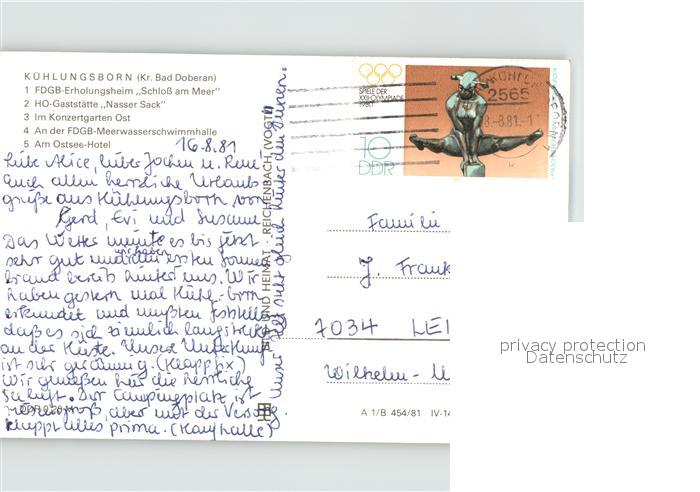 KÜHLUNGSBORN (Kr. Bad Doberan)
1 FDGB-Erholungsheim „Schloß am Meer"
2 HO-Gaststätte „Nasser Sack"
3 Im Konzertgarten Ost
4 An der FDGB-Meerwasserschwimmhalle
5 Am Ostsee-Hotel
16.8.81
Liebe Alice, lieber Jochen u. René
Euch allen herzliche Urlaubs
grüße aus Kühlungsborn von
Gerd, Evi und Susanne
Das Wetter meinte es bis jetzt
sehr gut und wir haben ersten Sonnen
brand bereits hinter uns. Wir
haben gestern mal Kühl.-born
erkundet und mußten feststellen
daß es sich ziemlich langstreckt
an der Küste. Unser Unterkunft
ist sehr geräumig. (Klappfix)
Wir genießen hier die herrliche
Seeluft. Der Campingplatz ist
riesengroß, aber mit der Versorg.
klappt alles prima. (Kaufhalle)
Unser Zelt steht gleich hinter den Dünen.
BILD UND HEIMAT REICHENBACH (VOGTL)
SPIELE DER
XXII. OLYMPIADE
1980
10
DDR
2565
-8.81.-1
Familie
J. Frank
7034 LEI
Wilhelm-
A 1/B 454/81 IV-14
privacy protection
Datenschutz